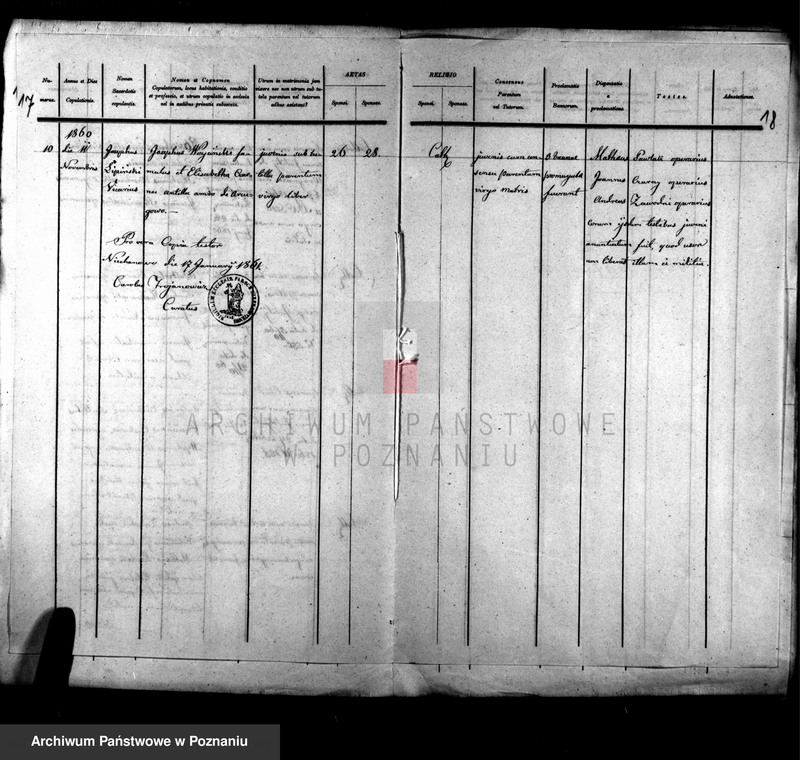 17
18
Nu-
merus.
Annus et Dies
Copulationis.
Nomen
Sacerdotis
copulantis.
Nomen et Cognomen
Copulatorum, locus habitationis, conditio
et professio, et utrum copulatio in ecclesia
vel in aedibus privatis subsecuta.
Utrum in matrimonio jam
vixere nec non utrum sub tu-
tela parentum vel tutorum
adhuc existant?
AETAS
Sponsi.
Sponsae.
RELIGIO
Sponsi.
Sponsae.
Consensus
Parentum
vel Tutorum.
Proclamatio
Bannorum.
Dispensatio
a
proclamatione.
Testes.
Adnotationes.
1860
10
die 11
Novembris
Josephus
Lipiński
Vicarius
Josephus Woziwiński fa-
mulus et Elisabetha Czar-
ne ancilla ambo de
gowo. —
juvenis sub tu-
tella parentum
virgo libera
26
28.
Cath
juvenis cum con-
sensu parentum
virgo Matris
3 Bannis
promulgati
fuerunt
Matheus Pawlak operarius
Joannes Czarny operarius
Andreas Zawodni operarius
coram ijsdem testibus juveni
annuntiatum fuit, quod uxor
non liberat illum a militia.
Pro vera Copia testor
Niechanowo die 17 Januarij 1861.
Carolus Trojanowicz
Curatus
ARCHIWUM PAŃSTWOWE
W POZNANIU
Archiwum Państwowe w Poznaniu